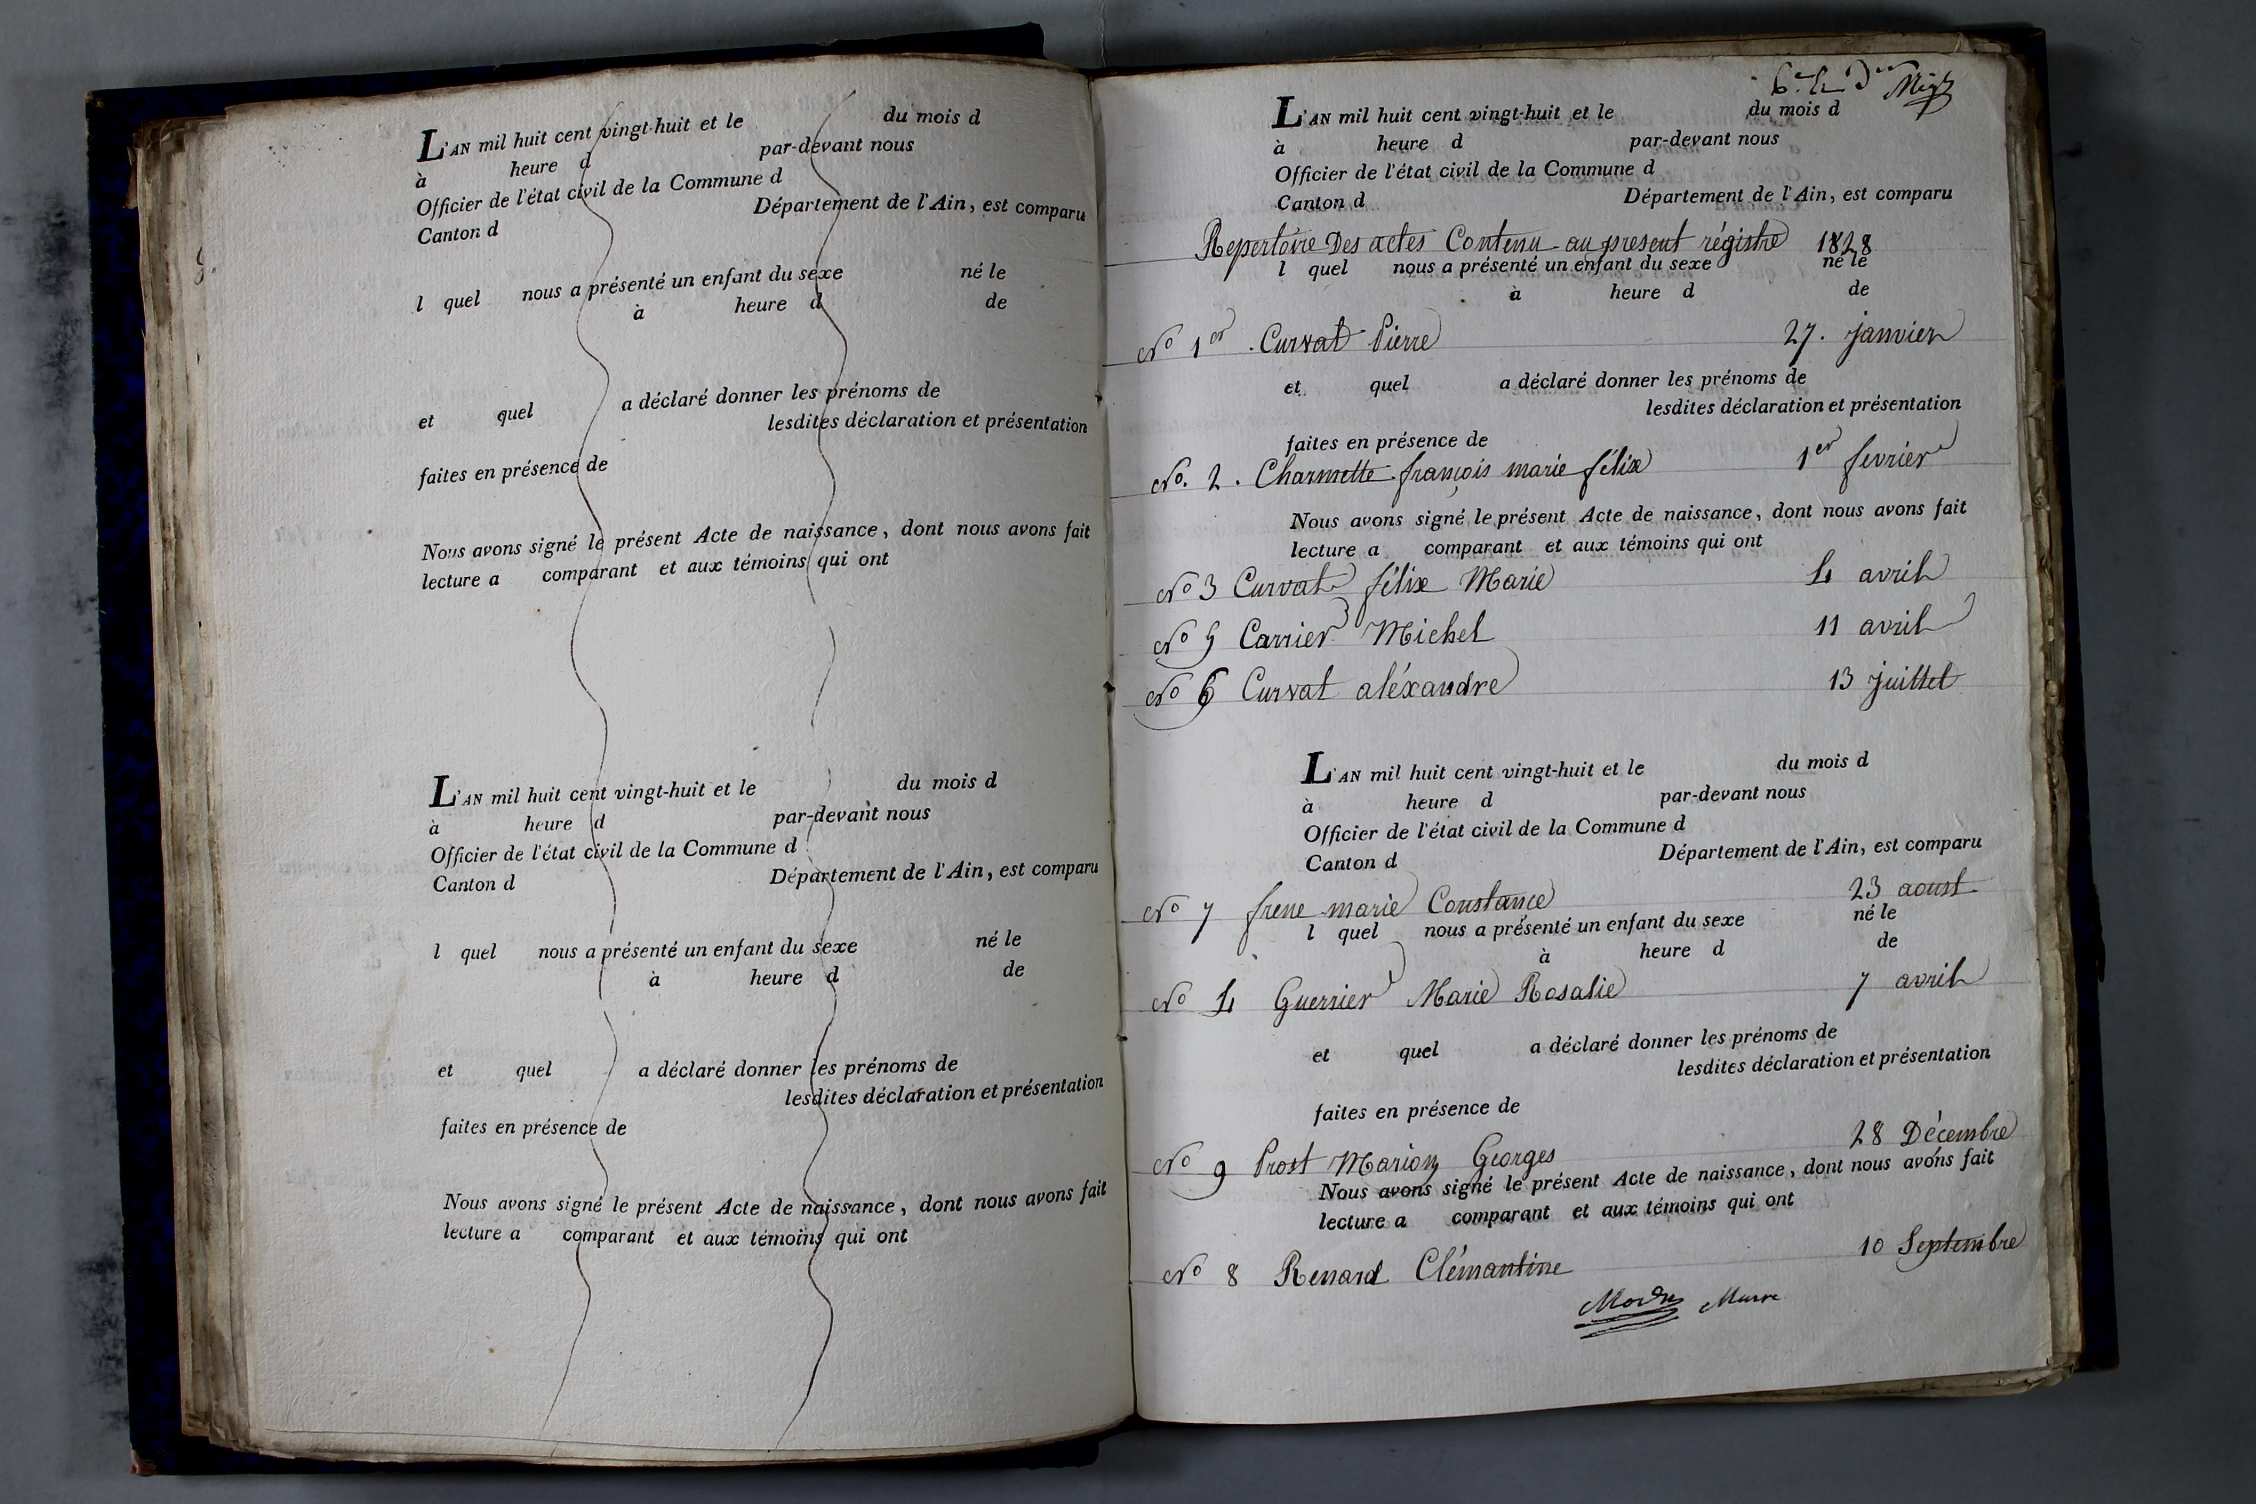 L'AN mil huit cent vingt-huit et le du mois d
à heure d par-devant nous
Officier de l'état civil de la Commune d
Canton d Département de l'Ain, est comparu
l quel nous a présenté un enfant du sexe né le
à heure d de
et quel a déclaré donner les prénoms de
lesdites déclaration et présentation
faites en présence de
Nous avons signé le présent Acte de naissance, dont nous avons fait
lecture a comparant et aux témoins qui ont
L'AN mil huit cent vingt-huit et le du mois d
à heure d par-devant nous
Officier de l'état civil de la Commune d
Canton d Département de l'Ain, est comparu
l quel nous a présenté un enfant du sexe né le
à heure d de
et quel a déclaré donner les prénoms de
lesdites déclaration et présentation
faites en présence de
Nous avons signé le présent Acte de naissance, dont nous avons fait
lecture a comparant et aux témoins qui ont
L'AN mil huit cent vingt-huit et le du mois d
à heure d par-devant nous
Officier de l'état civil de la Commune d
Canton d Département de l'Ain, est comparu
Repertoire Des actes Contenu au present régistre 1828
l quel nous a présenté un enfant du sexe né le
à heure d de
No 1er. Curvat Pierre 27. janvier
et quel a déclaré donner les prénoms de
lesdites déclaration et présentation
faites en présence de
No. 2. Charmette françois marie félix 1er fevrier
Nous avons signé le présent Acte de naissance, dont nous avons fait
lecture a comparant et aux témoins qui ont
No 3 Curvat félix Marie 4 avril
No 5 Carrier Michel 11 avril
No 6 Curvat aléxandre 13 juillet
L'AN mil huit cent vingt-huit et le du mois d
à heure d par-devant nous
Officier de l'état civil de la Commune d
Canton d Département de l'Ain, est comparu
No 7 frene marie Constance 23 aoust
l quel nous a présenté un enfant du sexe né le
à heure d de
No 4 Guerrier Marie Rosalie 7 avril
et quel a déclaré donner les prénoms de
lesdites déclaration et présentation
faites en présence de
No 9 Prost Marion Georges 28 Décembre
Nous avons signé le présent Acte de naissance, dont nous avons fait
lecture a comparant et aux témoins qui ont
No 8 Renard Clémantine 10 Septembre